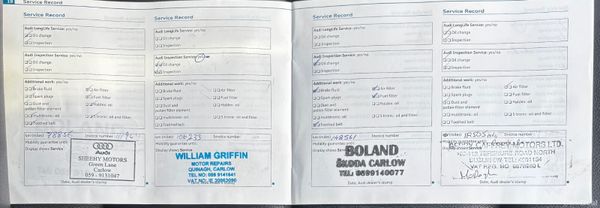 19
Service Record
Service Record
Audi LongLife Service: yes/no
Oil change
Inspection
Audi Inspection Service: yes/no
Oil change
Inspection
Additional work: yes/no
Brake fluid
Air filter
Spark plugs
Fuel filter
Dust and
pollen filter element
Haldex: oil
multitronic: oil
S tronic: oil and filter
Toothed belt
Invoice number
Mobility guarantee until:
Display shows Service
Audi
SHEEHY MOTORS
Green Lane
Carlow
059 - 9131047
Date, Audi dealer's stamp
Service Record
Audi LongLife Service: yes/no
Oil change
Inspection
Audi Inspection Service: yes/no
Oil change
Inspection
Additional work: yes/no
Brake fluid
Air filter
Spark plugs
Fuel filter
Dust and
pollen filter element
Haldex: oil
multitronic: oil
S tronic: oil and filter
Toothed belt
Invoice number
Mobility guarantee until:
Display shows Service
WILLIAM GRIFFIN
MOTOR REPAIRS
QUINAGH, CARLOW
Date, Audi dealer's stamp
Service Record
Service Record
Audi LongLife Service: yes/no
Oil change
Inspection
Audi Inspection Service: yes/no
Oil change
Inspection
Additional work: yes/no
Brake fluid
Air filter
Spark plugs
Fuel filter
Dust and
pollen filter element
Haldex: oil
multitronic: oil
S tronic: oil and filter
Toothed belt
Invoice number
Mobility guarantee until:
Display shows Service
BOLAND
ŠKODA CARLOW
TEL: 0599140077
Date, Audi dealer's stamp
Service Record
Audi LongLife Service: yes/no
Oil change
Inspection
Audi Inspection Service: yes/no
Oil change
Inspection
Additional work: yes/no
Brake fluid
Air filter
Spark plugs
Fuel filter
Dust and
pollen filter element
Haldex: oil
multitronic: oil
S tronic: oil and filter
Toothed belt
Invoice number
Mobility guarantee until:
Display shows
MOTORS LTD.
ROAD NORTH
Date, Audi dealer's stamp